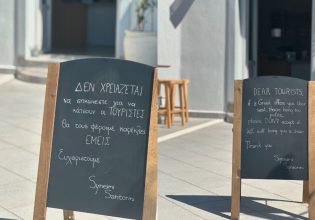 ΔΕΝ ΧΡΕΙΑΖΕΤΑΙ
να σηκώνεστε για να
κάτσουν οι ΤΟΥΡΙΣΤΕΣ
Θα τους φέρουμε καρέκλες
ΕΜΕΙΣ
Ευχαριστούμε
Synesmi
Santorini
DEAR TOURISTS,
if a Greek offers you their
seat
please DON'T accept it
we will bring you a chair
Thank you
Synesmi
Santorini